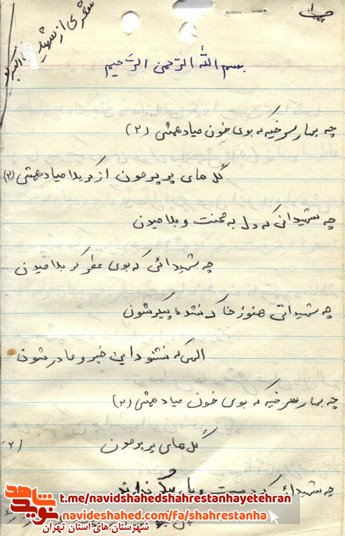 شعری از شهید
بسم الله الرّحمن الرّحیم
چه بهار سرخیه که بوی خون میاد همش (۲)
گل های پرپرمون از کربلا میاد همش (۲)
چه شهیدائی که دل به محنت و بلا میدن
چه شهیدائی که بوی عطر کربلا میدن
چه شهیدائی هنوز خاک نشده پیکرشون
الهی که نشنود این خبرو مادرشون
چه بهار سرخیه که بوی خون میاد همش (۲)
گل های پرپرمون (۲)
چه شهیدائی که دست و پا
شاهد
نوید
t.me/navidshahedshahrestanhayetehran
navideshahed.com/fa/shahrestanha
شهرستان های استان تهران